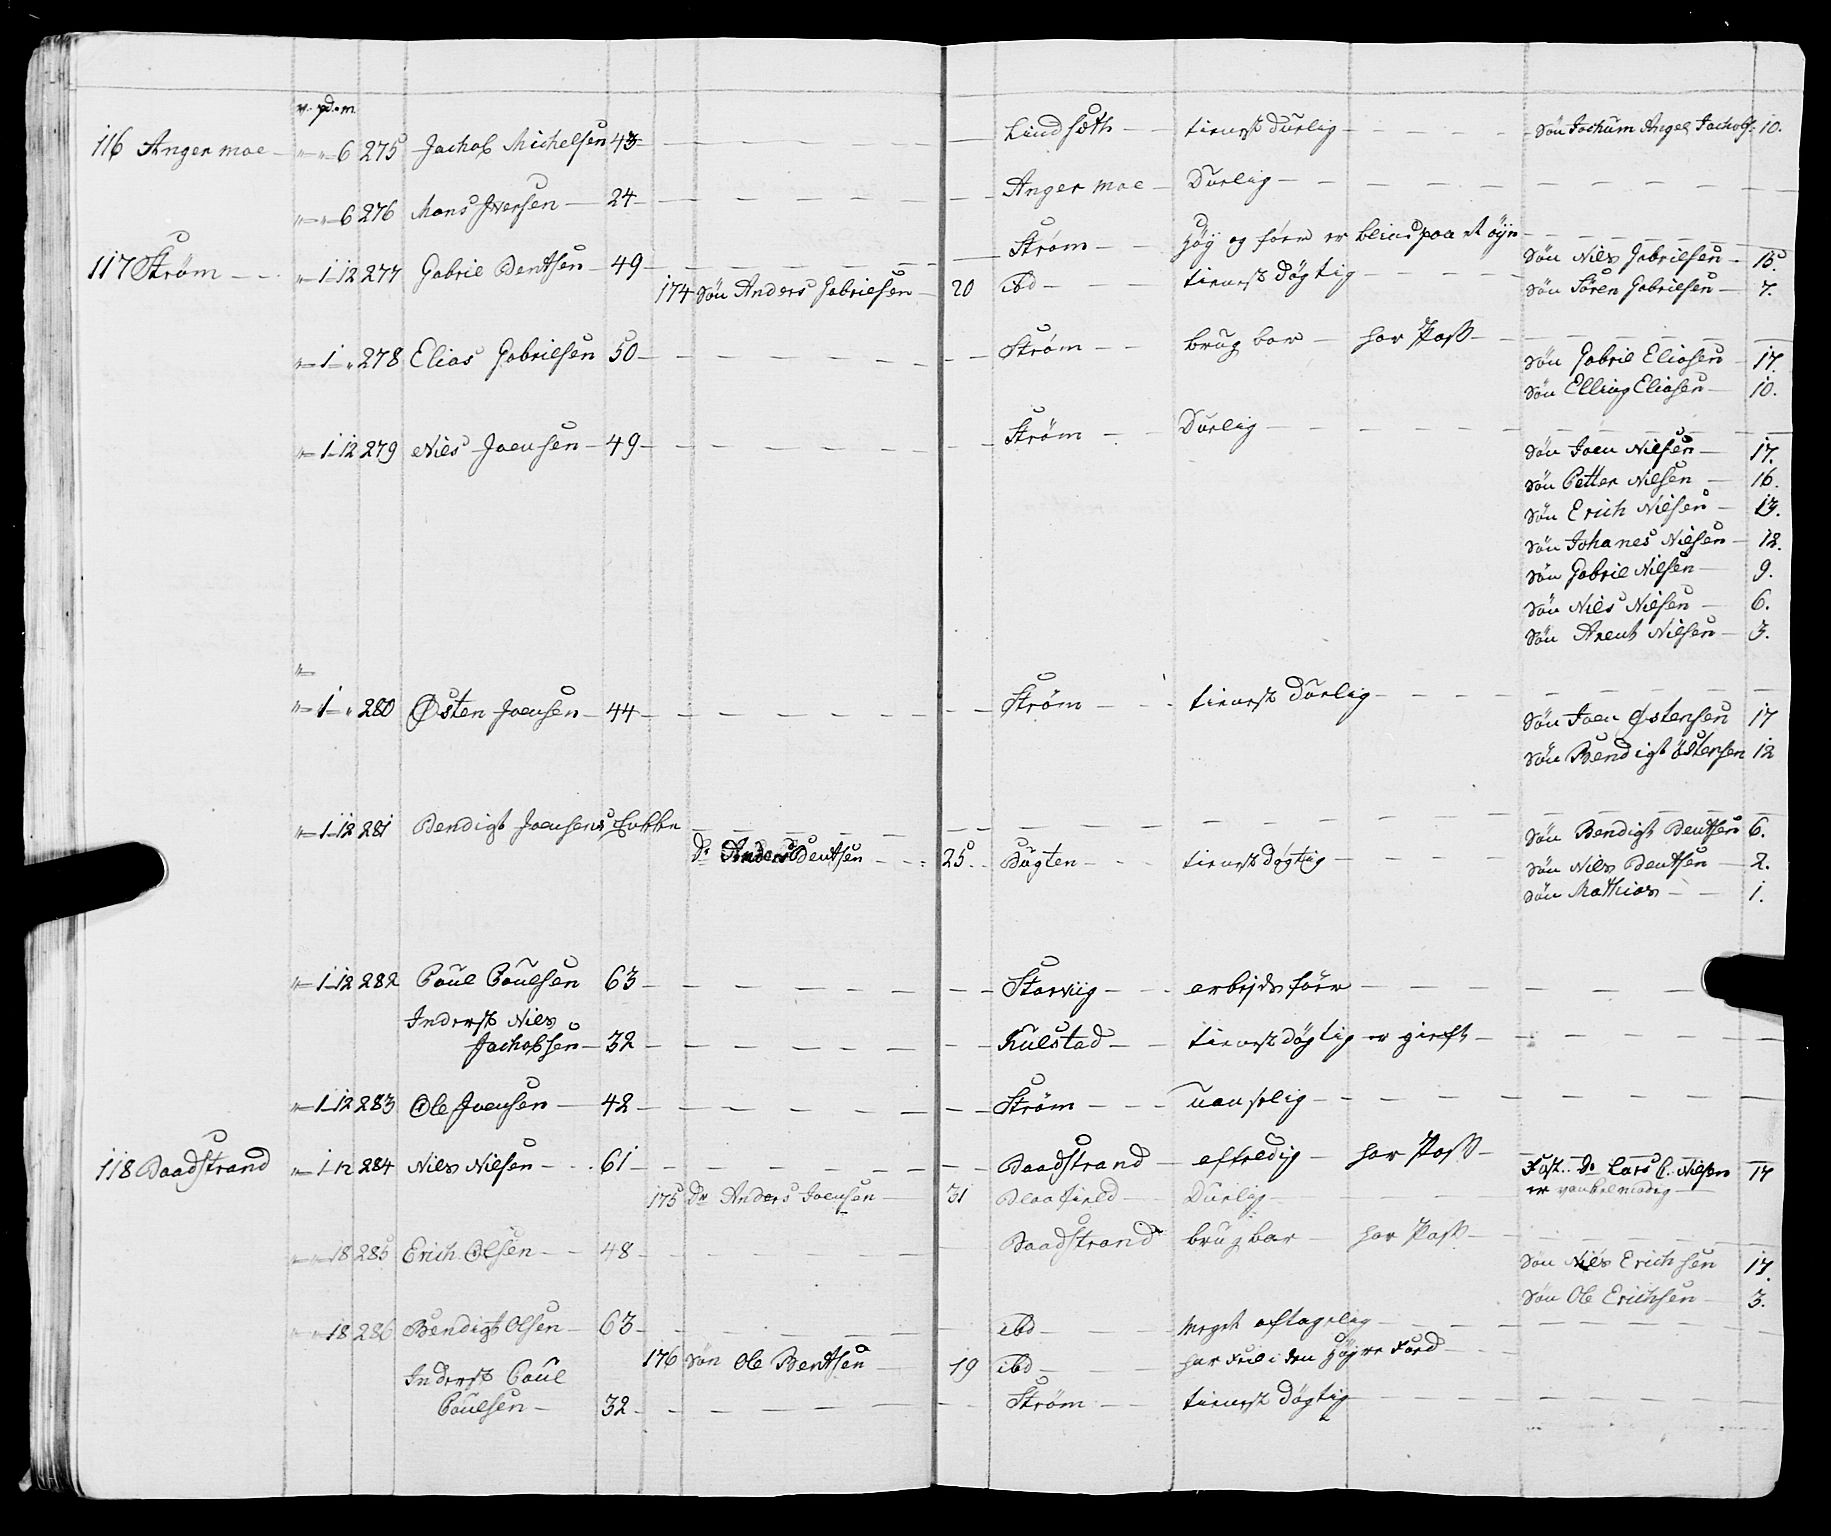 v. pd. m
116 Anger moe — " — " — 6 275 Jachob Michelsen 43 — — — Lindsæth — tienest Durlig — — Søn Jochum Angel Jachobs: 10.
" — " — 6 276 Mons Iversen — 24 — — — Anger moe — Durlig — — —
117 Strøm — " 1 12 277 Gabriel Bentsen — 49 — — — Strøm — høy og føer er blind paa et øye — — Søn Niels Gabrielsen — 15.
174 Søn Anders Gabrielsen — 20 ibd — tienest Døgtig — — Søn Søren Gabrielsen — 7.
" — 1 — " 278 Elias Gabrielsen 50 — — — Strøm — brugbar — har Pass — Søn Gabriel Eliasen — 17.
Søn Elling Eliasen — 10.
" — 1 — 12 279 Niels Joensen — 49 — — — Strøm — Durlig — — Søn Joen Nielsen — 17.
Søn Petter Nielsen — 16.
Søn Erich Nielsen — 13.
Søn Johanes Nielsen — 12.
Søn Gabriel Nielsen — 9.
Søn Niels Nielsen — 6.
Søn Arent Nielsen — 3.
" —
" — 1 — " 280 Østen Joensen — 44 — — — Strøm — tienest Durlig — — Søn Joen Østensen 17
Søn Bendigt Østensen 12
" — 1 — 12 281 Bendigt Joensens Enkke — — — Søn Bendigt Bentsen 6.
Dr Anders Bentsen — 25. Bugten — tienest Døgtig — — Søn Niels Bentsen — 2.
Søn Mathias — 1.
" — 1 — 12 282 Poul Poulsen 63 — — — Storviig — arbejds føer — — —
Inderst Niels
Jachobsen — 32 — — — Kulstad — tienest døgtig er gieft — —
" — 1 — 12 283 Ole Joensen — 42 — — — Strøm — uanselig — — —
118 Baadstrand " — 1 12 284 Niels Nielsen — 61 — — — Baadstrand — aflædig — har Pass — Fost. Dr Lars C. Nielsen 17
175 Dr Anders Joensen — 31 Blaafield — Durlig — — er vankelmodig —
" — " — 18 285 Erich Olsen — 48 — — — Baadstrand brugbar — har Pass — Søn Niels Erichsen 17.
Søn Ole Erichsen — 3.
" — " — 18 286 Bendigt Olsen — 63 — — — ibd — Meget aftagelig — — —
176 Søn Ole Bentsen — 19 ibd — har Feil i den Høgre Foed — —
Inderst Poul
Poulsen — 32 — — — Strøm — tienest Døgtig — — —